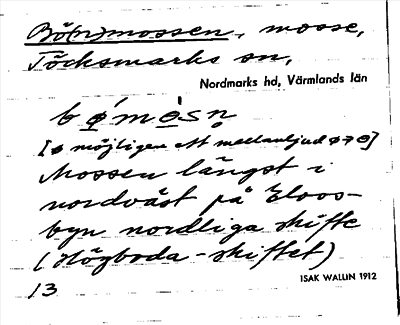 Bö(n)mossen, mosse,
Töcksmarks sn,
Nordmarks hd, Värmlands län
bǿmèsn̥
[ø möjligen ett mellanljud ø7ɵ]
Mossen längst i
nordväst på Elovs-
byn nordliga skifte
(Högboda-skiftet)
ISAK WALLIN 1912
13